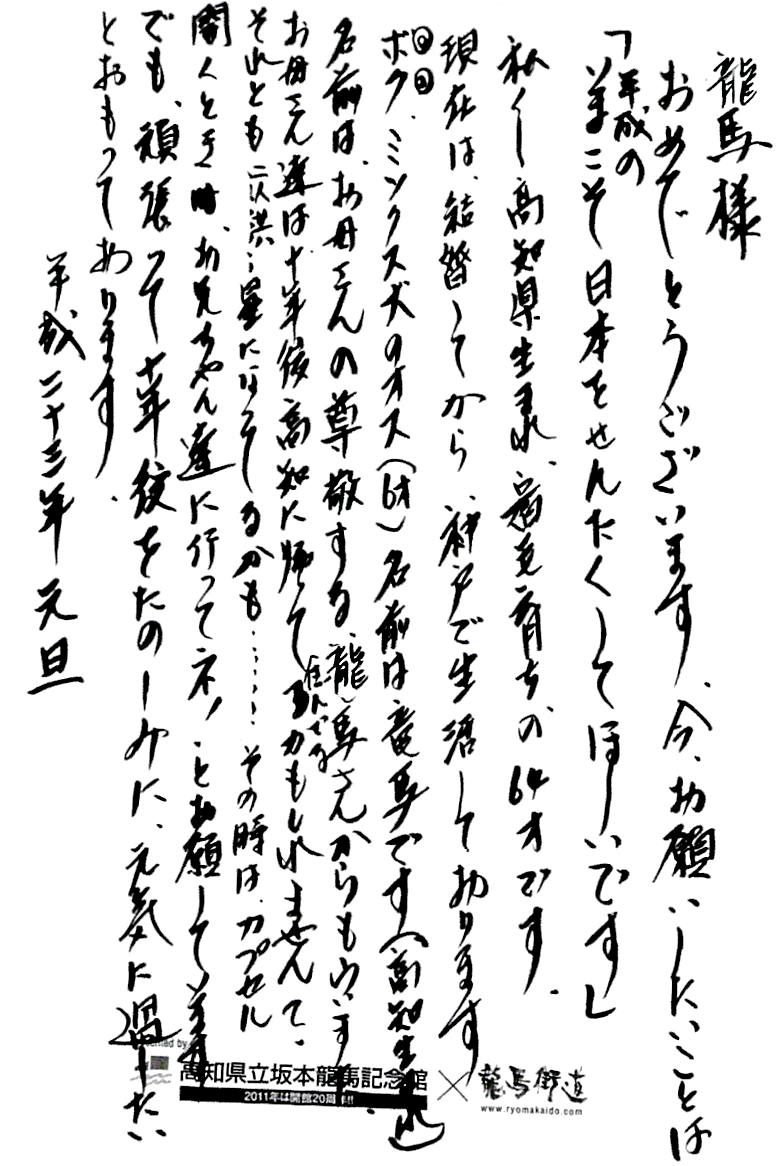 龍馬様
おめでとうございます、今、お願いしたいことは
「平成の
いまこそ日本をせんたくしてほしいです」
私くし高知県生まれ、育ちの64才です.
現在は、結婚してから、神戸で生活しております
ボク、ミックス犬のオス(6才)名前は竜馬です(高知生まれ)
名前は、お母さんの尊敬する、龍馬さんからもらいました.
お母さん達は十年後高知に帰って住んでるかもしれませんて.
それとも 星になってるかも……その時は、カプセル
開くとき時、お兄ちゃん達に行ってネ!とお願しています
でも、頑張って十年後をたのしみに、元気に過したい
とおもっております.
平成二十三年 元旦
高知県立坂本龍馬記念館 × 龍馬街道
2011年は開館20周年!!
www.ryomakaido.com